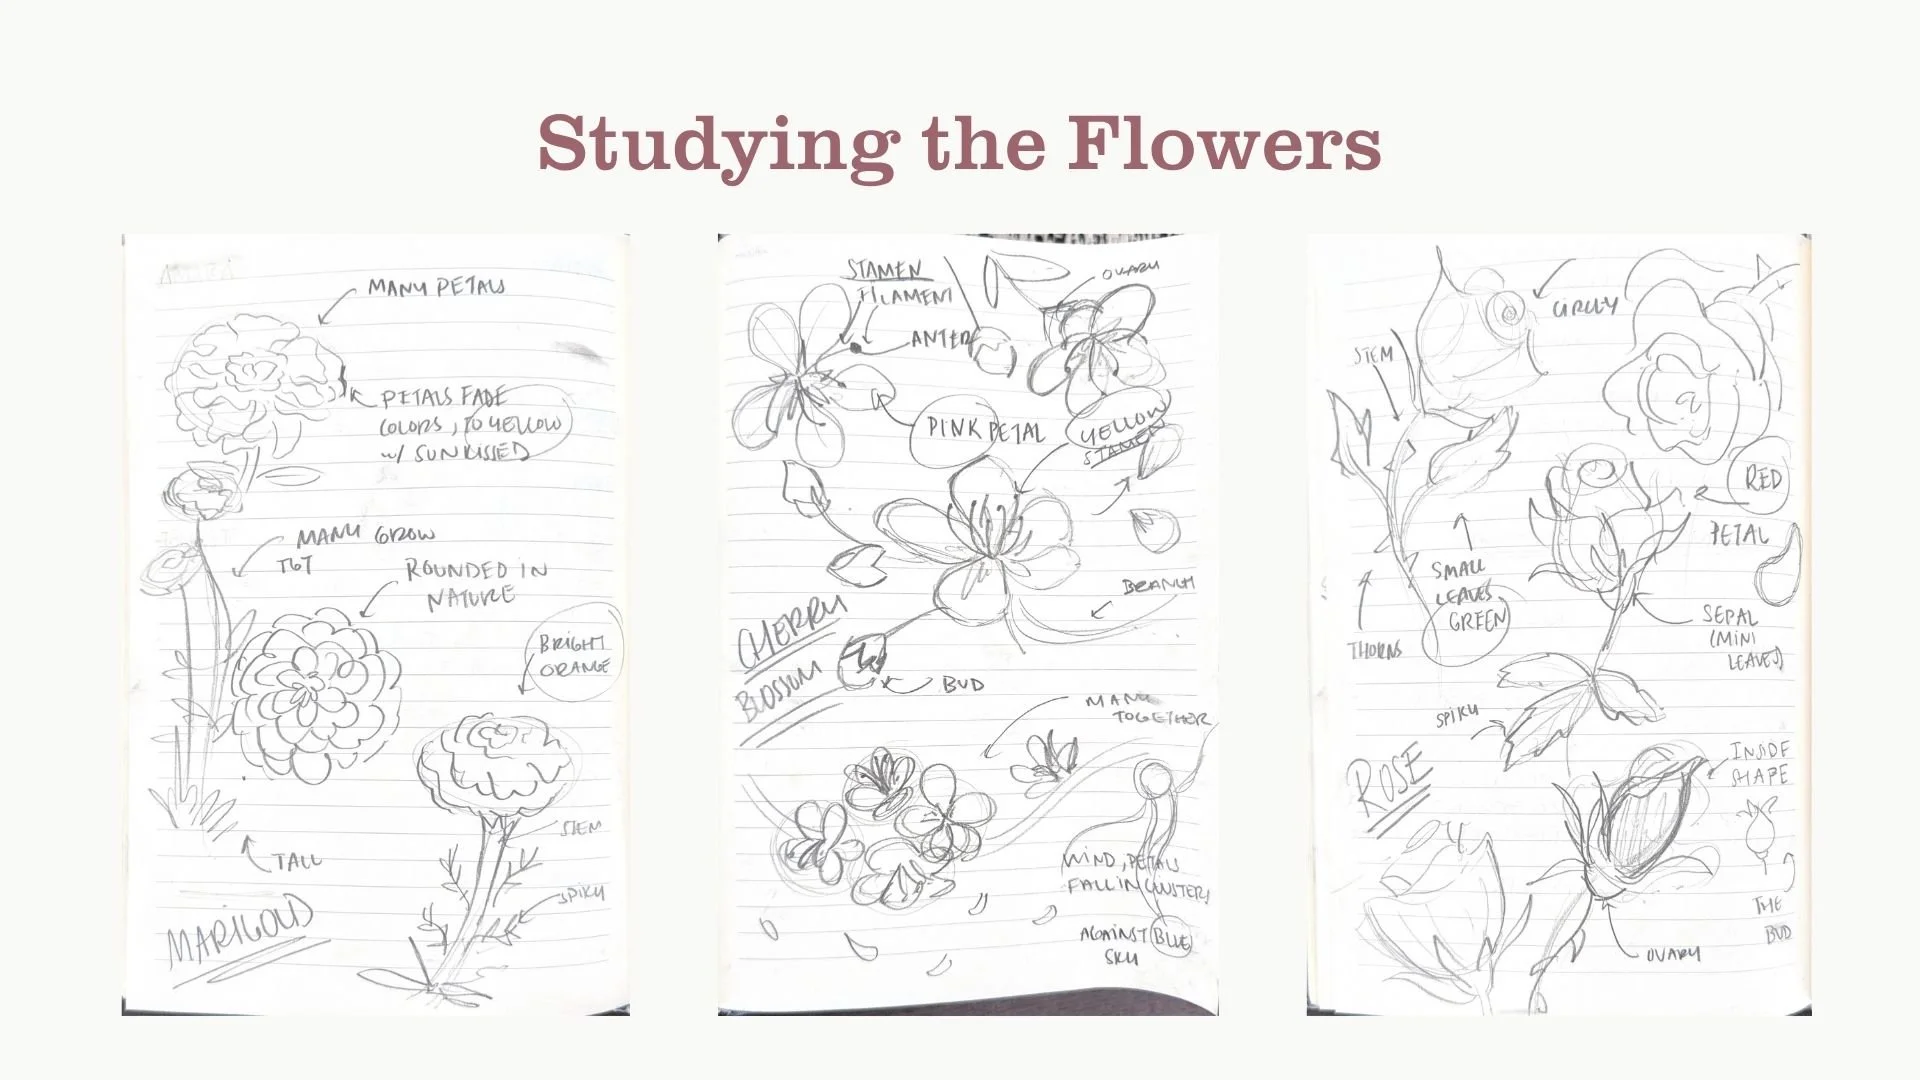 Studying the Flowers
MANY PETALS
PETALS FADE
COLORS, TO YELLOW
w/ SUNKISSED
MANY GROW
TGT
ROUNDED IN
NATURE
BRIGHT
ORANGE
STEM
TALL
SPIKY
MARIGOLD
STAMEN
FILAMENT
OVARY
ANTER
PINK PETAL
YELLOW
STAMEN
BRANCH
CHERRY
BLOSSOM
BUD
MANY
TOGETHER
WIND, PETALS
FALL IN CLUSTERS
AGAINST BLUE
SKY
CIRCLEY
STEM
RED
PETAL
SMALL
LEAVES
GREEN
THORNS
SEPAL
(MINI
LEAVES)
SPIKY
ROSE
INSIDE
SHAPE
THE
BUD
OVARY